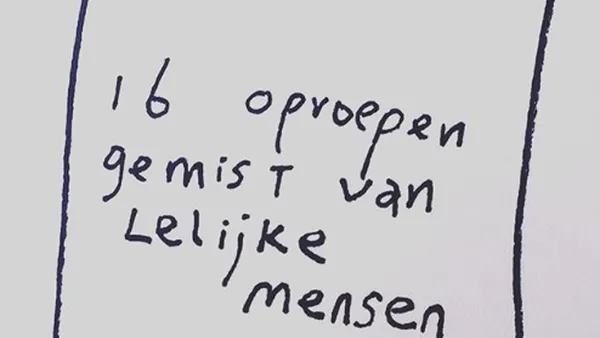 16 oproepen
gemist van
Lelijke
mensen